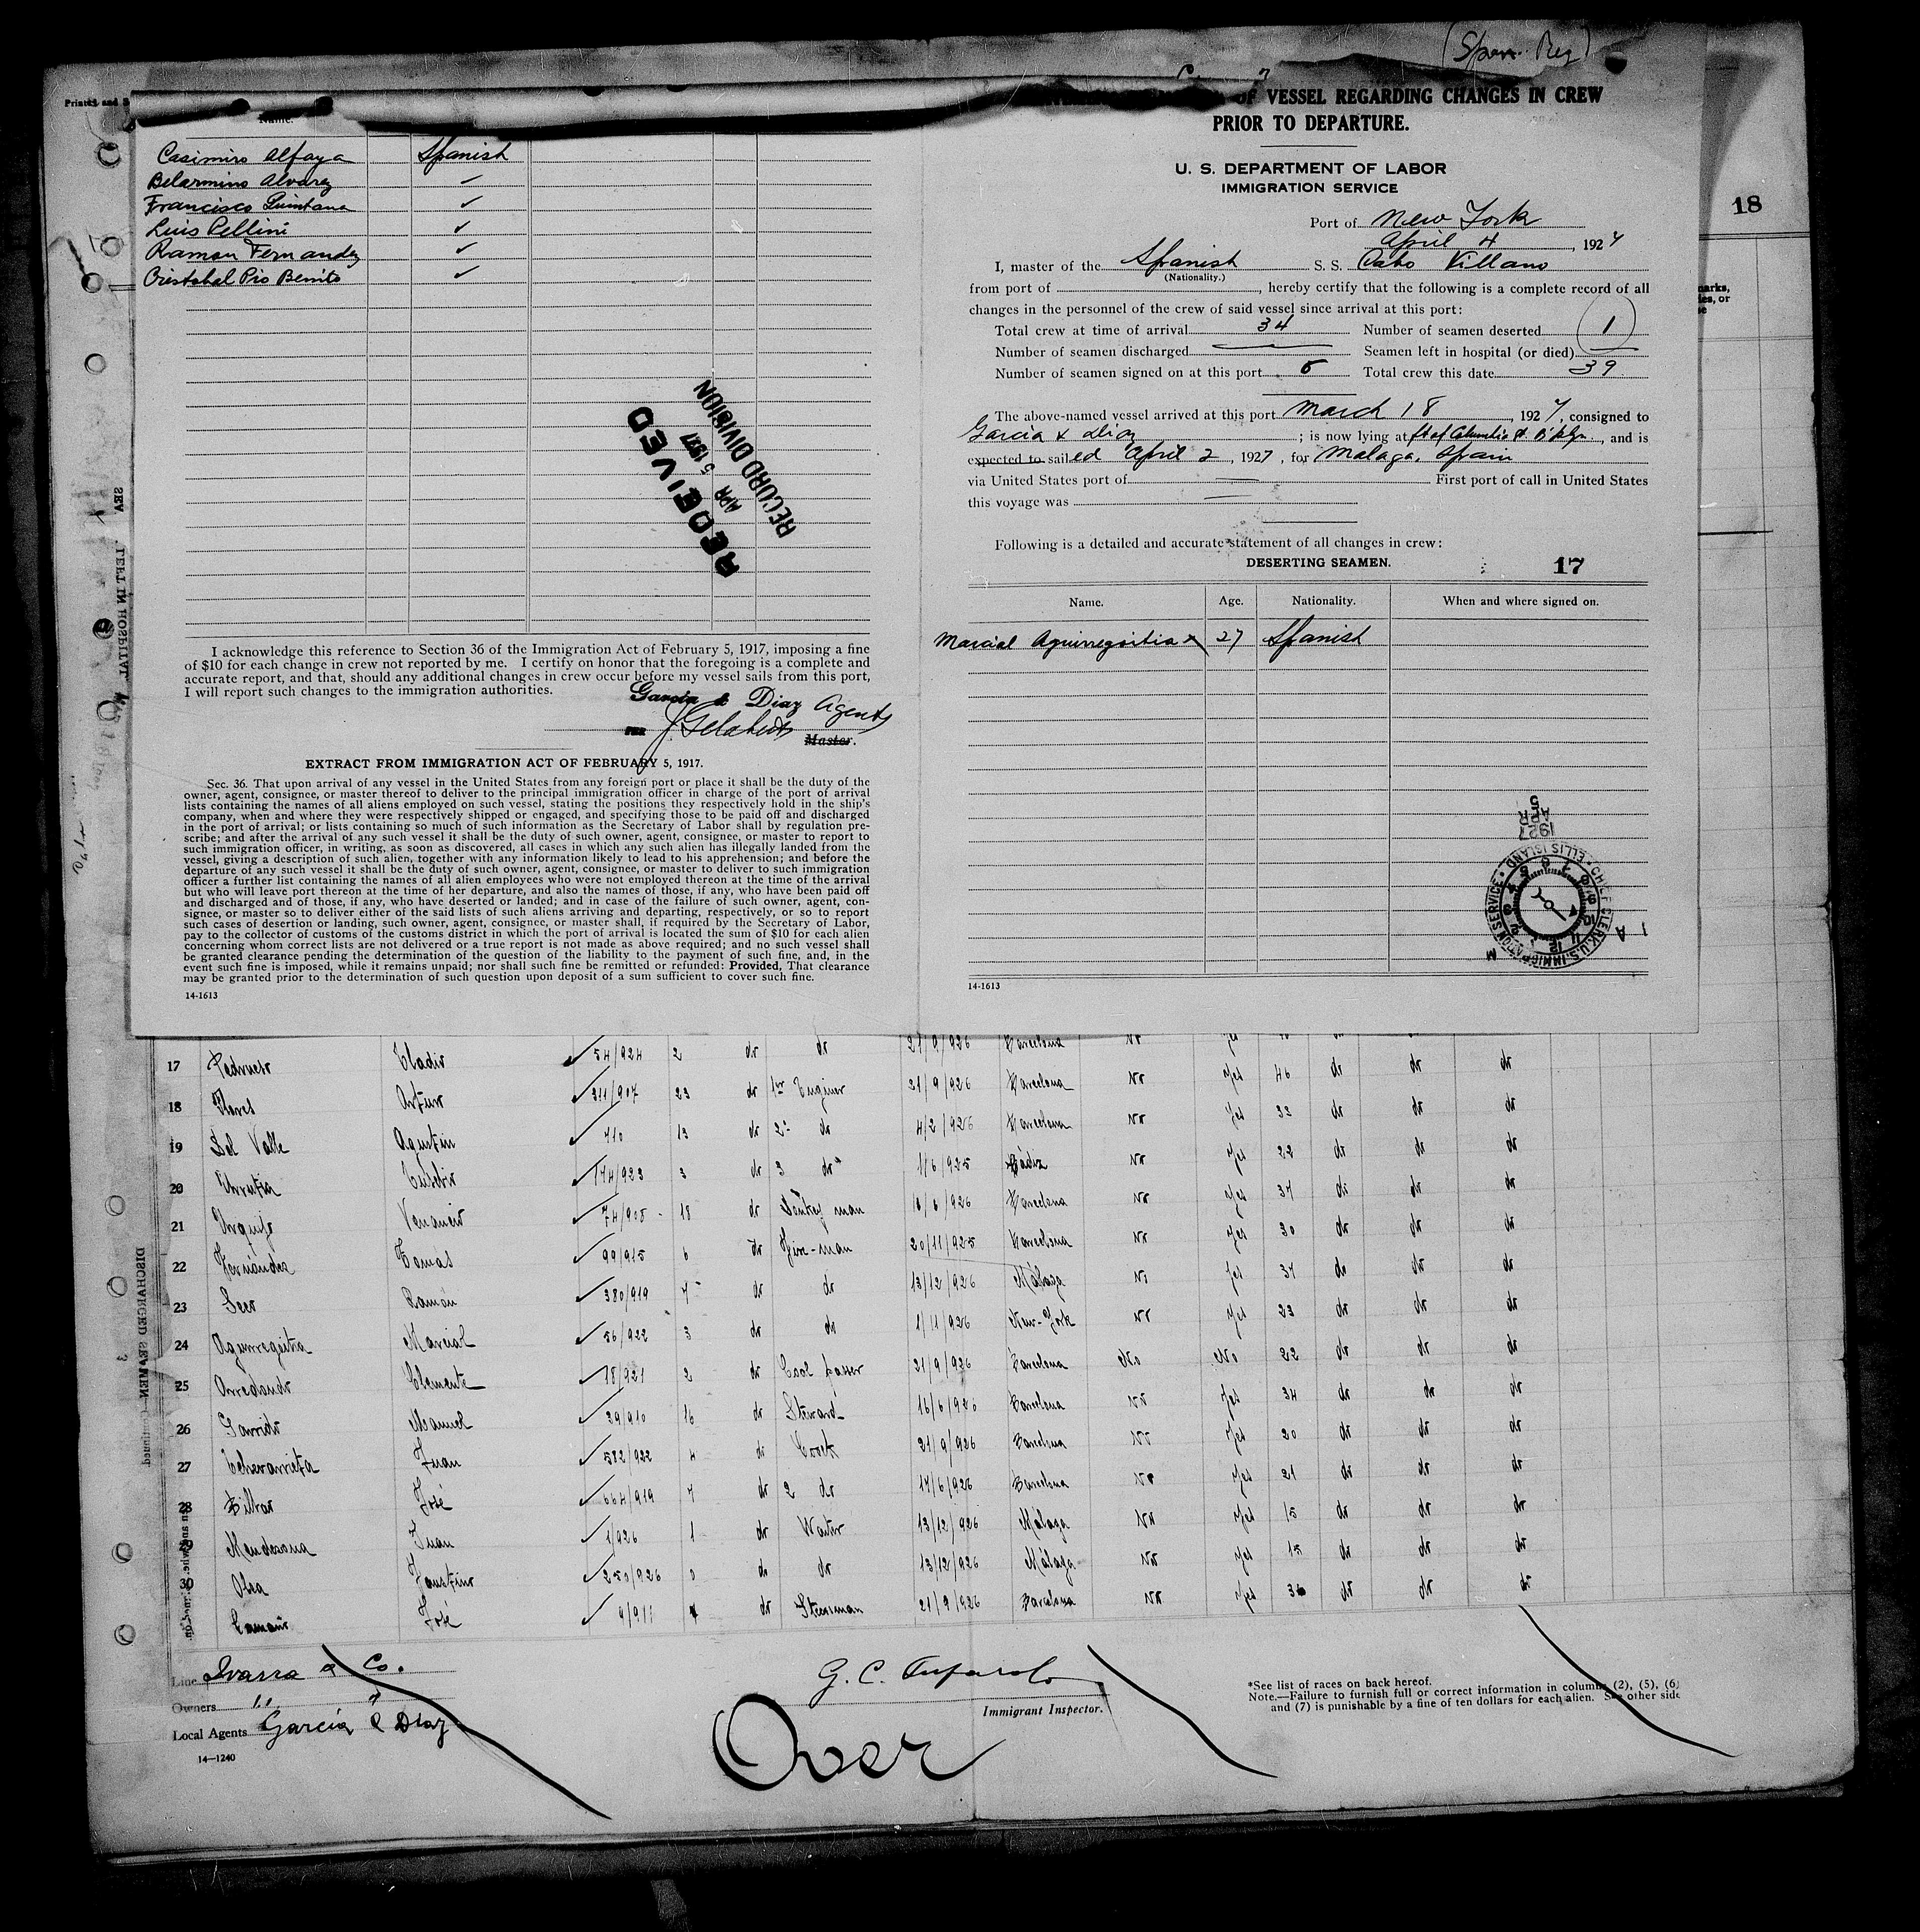 (Span. Reg)
Printed and S
Name.
Casimiro Alfaya Spanish
Belarmino Alvarez ✓
Francisco Quintana ✓
Luis Pellini ✓
Ramon Fernandez ✓
Cristobal Pio Benito ✓
RECEIVED
APR 5 1927
RECORD DIVISION
I acknowledge this reference to Section 36 of the Immigration Act of February 5, 1917, imposing a fine
of $10 for each change in crew not reported by me. I certify on honor that the foregoing is a complete and
accurate report, and that, should any additional changes in crew occur before my vessel sails from this port,
I will report such changes to the immigration authorities.
Garcia & Diaz Agents
PER
Master.
EXTRACT FROM IMMIGRATION ACT OF FEBRUARY 5, 1917.
Sec. 36. That upon arrival of any vessel in the United States from any foreign port or place it shall be the duty of the
owner, agent, consignee, or master thereof to deliver to the principal immigration officer in charge of the port of arrival
lists containing the names of all aliens employed on such vessel, stating the positions they respectively hold in the ship's
company, when and where they were respectively shipped or engaged, and specifying those to be paid off and discharged
in the port of arrival; or lists containing so much of such information as the Secretary of Labor shall by regulation pre-
scribe; and after the arrival of any such vessel it shall be the duty of such owner, agent, consignee, or master to report to
such immigration officer, in writing, as soon as discovered, all cases in which any such alien has illegally landed from the
vessel, giving a description of such alien, together with any information likely to lead to his apprehension; and before the
departure of any such vessel it shall be the duty of such owner, agent, consignee, or master to deliver to such immigration
officer a further list containing the names of all alien employees who were not employed thereon at the time of the arrival
but who will leave port thereon at the time of her departure, and also the names of those, if any, who have been paid off
and discharged and of those, if any, who have deserted or landed; and in case of the failure of such owner, agent, con-
signee, or master so to deliver either of the said lists of such aliens arriving and departing, respectively, or so to report
such cases of desertion or landing, such owner, agent, consignee, or master shall, if required by the Secretary of Labor,
pay to the collector of customs of the customs district in which the port of arrival is located the sum of $10 for each alien
concerning whom correct lists are not delivered or a true report is not made as above required; and no such vessel shall
be granted clearance pending the determination of the question of the liability to the payment of such fine, and, in the
event such fine is imposed, while it remains unpaid; nor shall such fine be remitted or refunded: Provided, That clearance
may be granted prior to the determination of such question upon deposit of a sum sufficient to cover such fine.
14-1613
OF VESSEL REGARDING CHANGES IN CREW
PRIOR TO DEPARTURE.
U. S. DEPARTMENT OF LABOR
IMMIGRATION SERVICE
Port of New York
April 4, 1927
I, master of the Spanish S. S. Cabo Villano
(Nationality.)
from port of , hereby certify that the following is a complete record of all
changes in the personnel of the crew of said vessel since arrival at this port:
Total crew at time of arrival 34 Number of seamen deserted 1
Number of seamen discharged — Seamen left in hospital (or died) —
Number of seamen signed on at this port 6 Total crew this date 39
The above-named vessel arrived at this port March 18, 1927, consigned to
Garcia & Diaz ; is now lying at ft of Columbia St. B'klyn, and is
expected to sailed April 2, 1927, for Malaga, Spain
via United States port of — First port of call in United States
this voyage was —
Following is a detailed and accurate statement of all changes in crew:
DESERTING SEAMEN. 17
Name. Age. Nationality. When and where signed on.
Marcial Aguirregoitia x 27 Spanish
APR 5
1927
CHIEF CLERK U.S. IMMIGRATION SERVICE ELLIS ISLAND
14-1613
18
marks,
DISCHARGED SEAMEN—Continued
17 Eladio ✓ 54/924 2 do do 21/9/926 Barcelona No Yes
18 Flores Arturo ✓ 311/907 23 do 1er Enginer 21/9/926 Barcelona No Yes 46 do do do
19 Del Valle Agustin ✓ 710 13 do 2º do 4/2/926 Barcelona No Yes 33 do do do
20 Urrutia Eusebio ✓ 174/923 3 do 3 do 1/6/925 Cádiz No Yes 22 do do do
21 Urquijo Venancio ✓ 74/908 18 do Donkey man 16/6/926 Barcelona No Yes 37 do do do
22 Fernández Tomas ✓ 99/915 6 do Fire-man 20/11/925 Barcelona No Yes 30 do do do
23 Seer Ramón ✓ 380/919 7 do do 13/12/926 Málaga No Yes 37 do do do
24 Aguirregoitia Marcial ✓ 56/922 3 do do 1/11/926 New-York No Yes 23 do do do
25 Arredondo Clemente ✓ 18/921 2 do 21/9/926 Barcelona No No 22 do do do
26 Garrido Manuel ✓ 29/910 16 do Steward 16/6/926 Barcelona No Yes 34 do do do
27 Echevarrieta Juan ✓ 582/922 4 do Cook 21/9/926 Barcelona No Yes 20 do do do
28 Billar José ✓ 664/919 7 do 2 do 17/6/926 Barcelona No Yes 21 do do do
29 Mendezona Juan ✓ 1/926 1 do Waiter 13/12/926 Málaga No Yes 15 do do do
30 Olea Faustino ✓ 250/926 0 do do 13/12/926 Málaga No Yes 15 do do do
José ✓ 9/911 do Steersman 21/9/926 Barcelona No Yes 36 do do do
Line Ivarra & Co.
Owners " "
Local Agents Garcia & Diaz
14—1240
G. C.
Immigrant Inspector.
Over
*See list of races on back hereof.
Note.—Failure to furnish full or correct information in columns (2), (5), (6)
and (7) is punishable by a fine of ten dollars for each alien. See other side